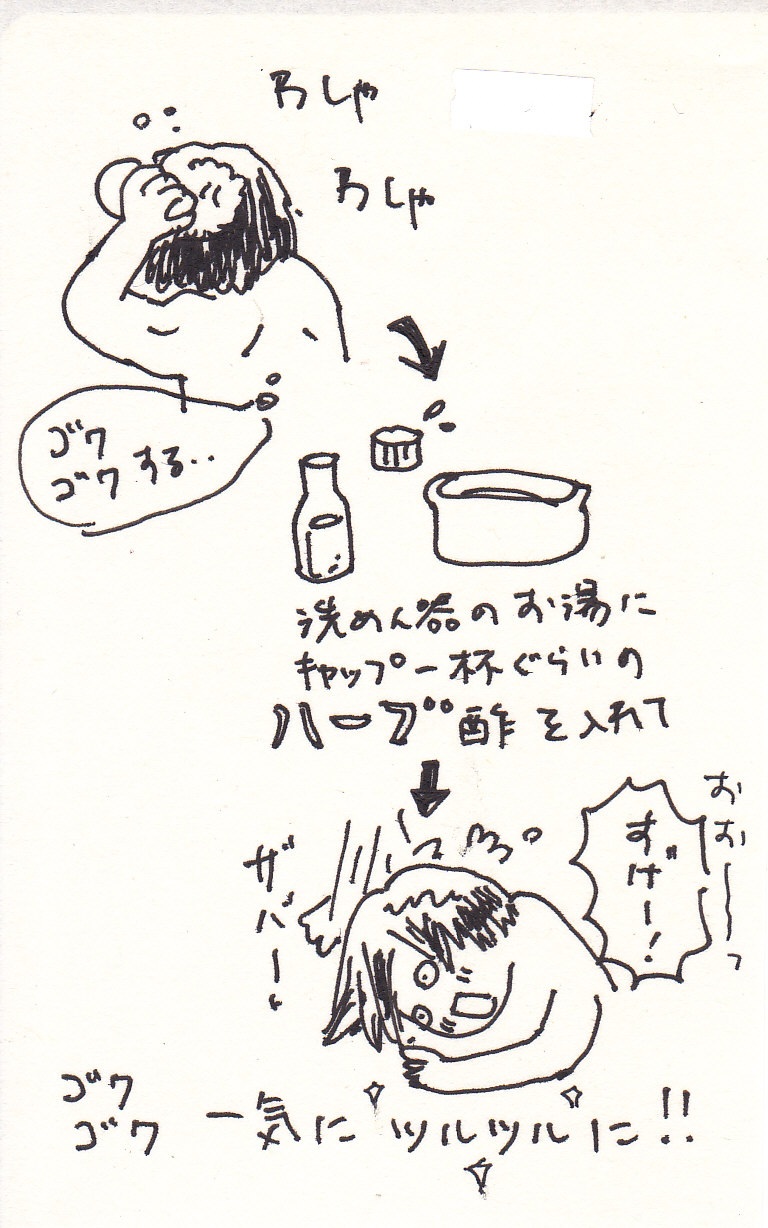 わしゃ
わしゃ
ゴワ
ゴワする‥
洗めん器のお湯に
キャップ一杯ぐらいの
ハーブ酢を入れて
ザバーッ
おおーっ
すげー!
ゴワ
ゴワ
一気にツルツルに!!